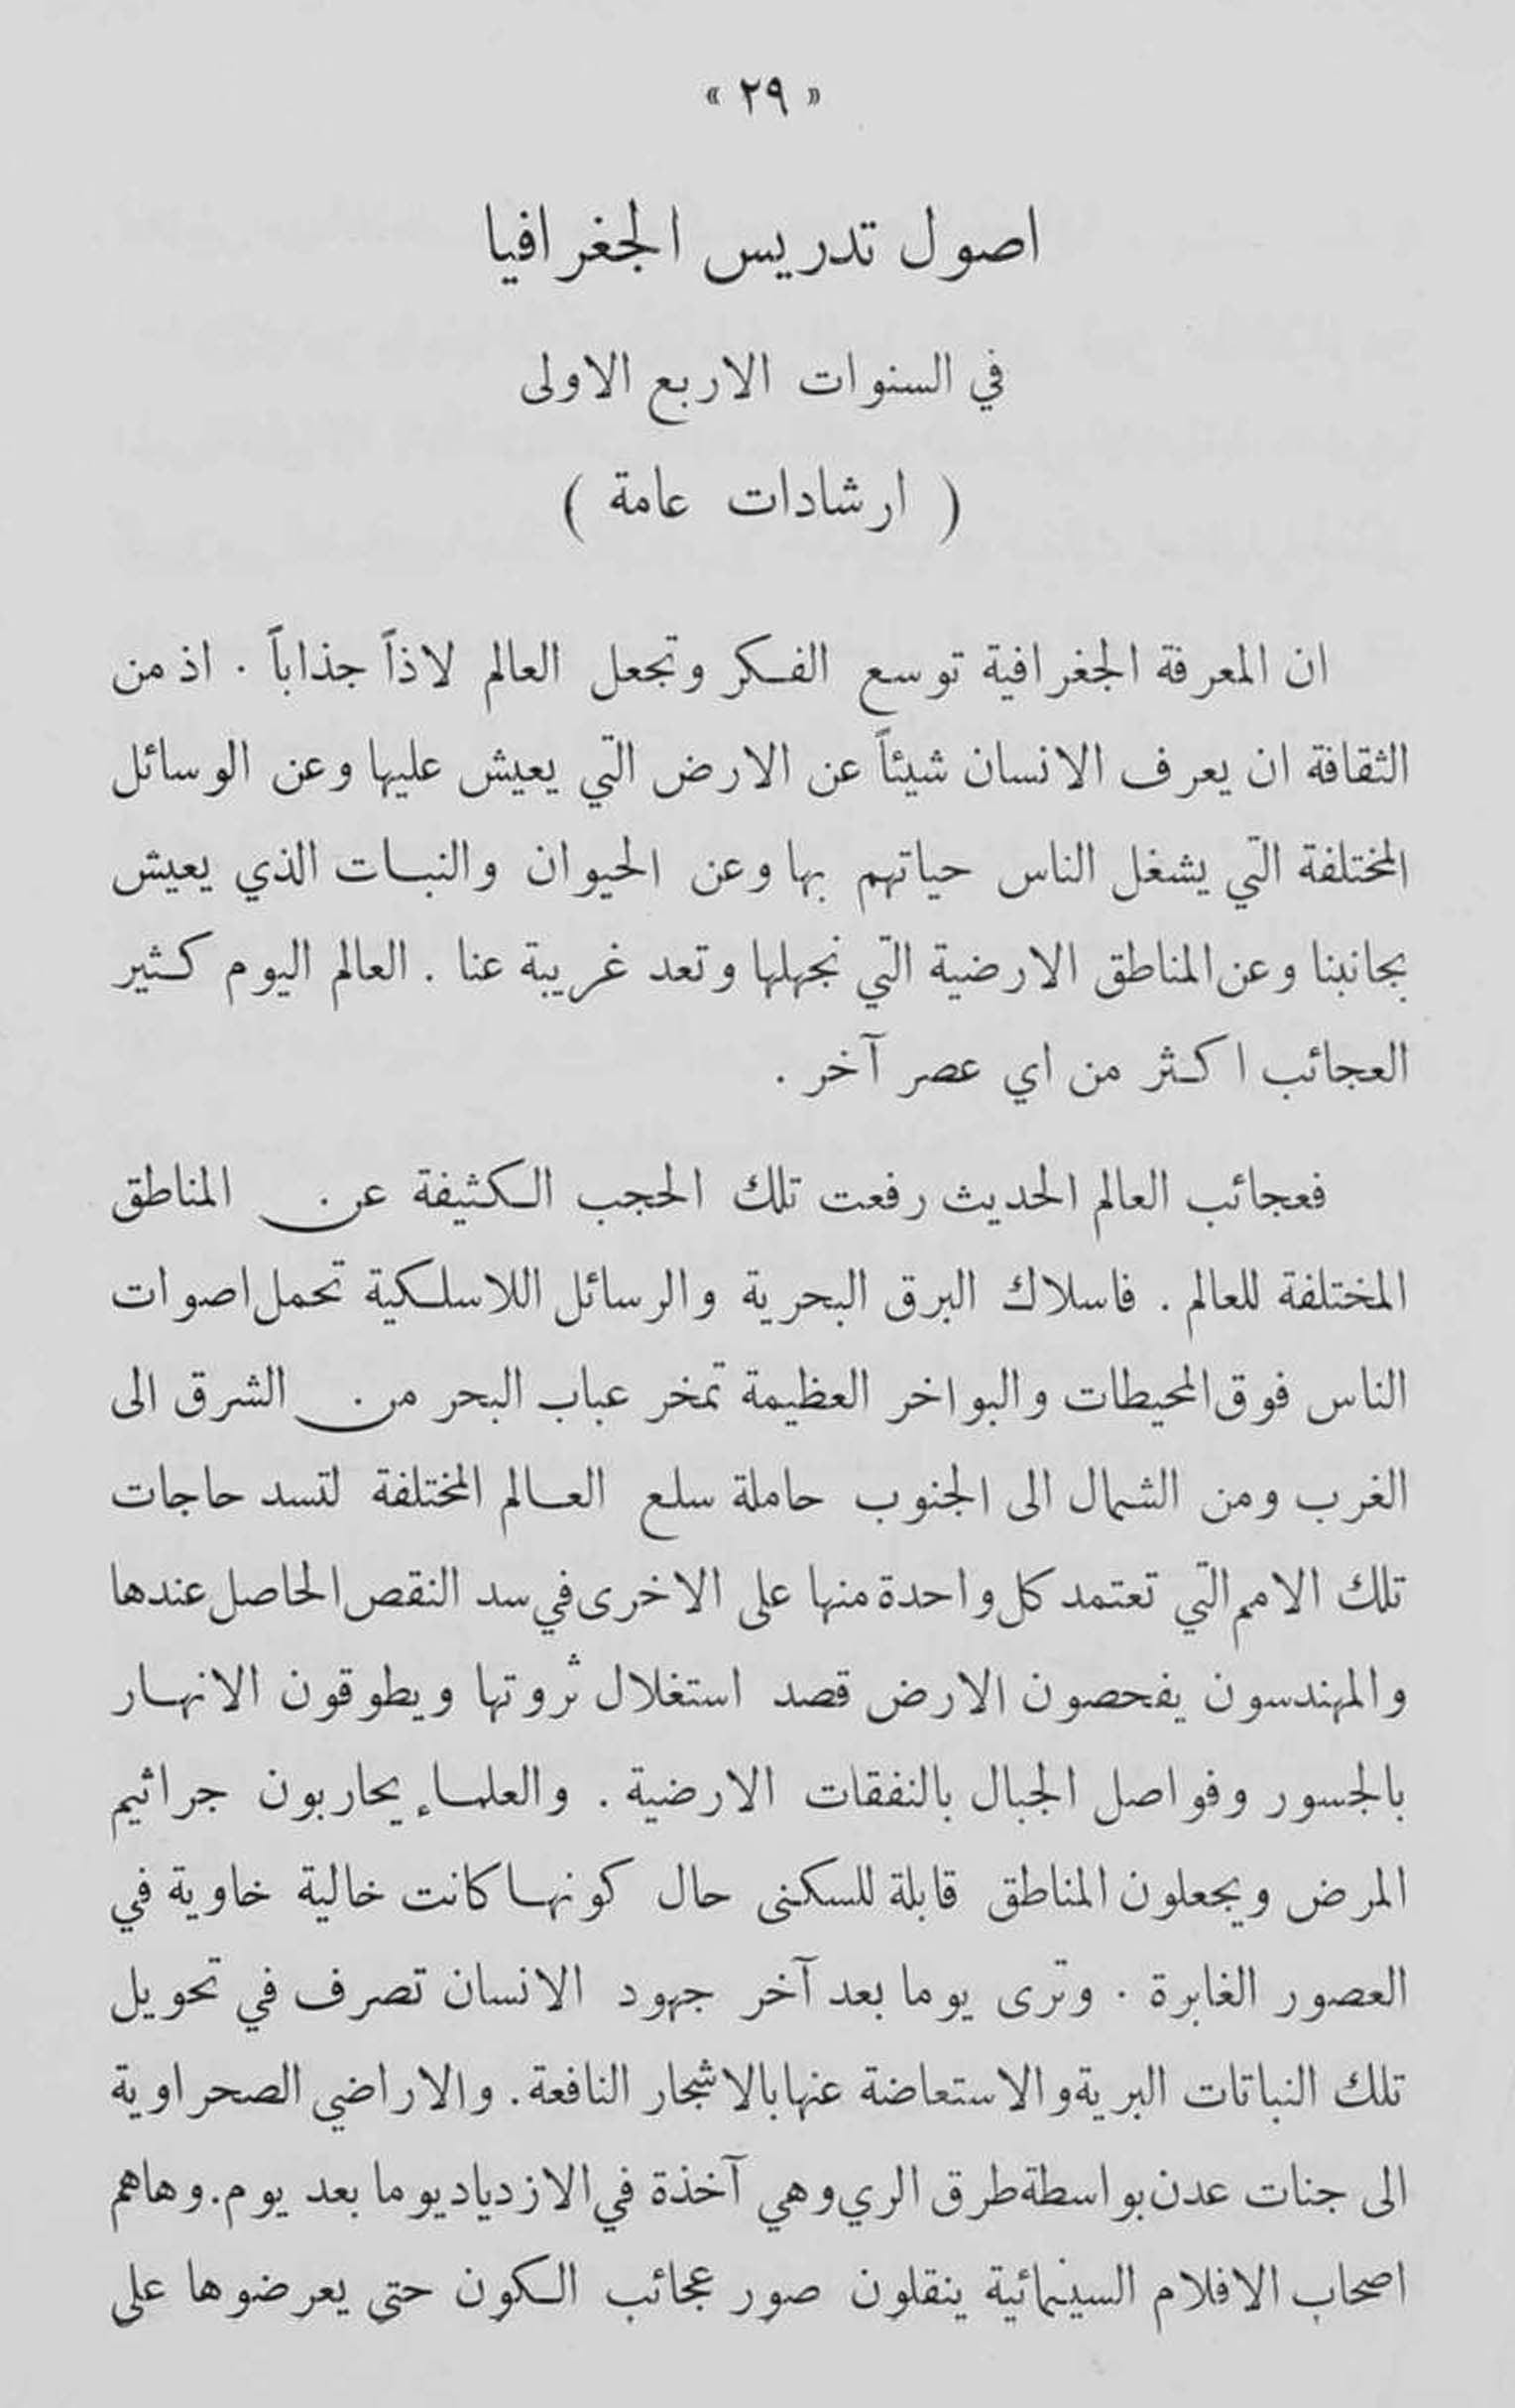 « ٢٩ »
اصول تدريس الجغرافيا
في السنوات الاربع الاولى
( ارشادات عامة )
ان المعرفة الجغرافية توسع الفكر وتجعل العالم لاذاً جذاباً . اذ من
الثقافة ان يعرف الانسان شيئاً عن الارض التي يعيش عليها وعن الوسائل
المختلفة التي يشغل الناس حياتهم بها وعن الحيوان والنبات الذي يعيش
بجانبنا وعن المناطق الارضية التي نجهلها وتعد غريبة عنا . العالم اليوم كثير
العجائب اكثر من اي عصر آخر .
فعجائب العالم الحديث رفعت تلك الحجب الكثيفة عن المناطق
المختلفة للعالم . فاسلاك البرق البحرية والرسائل اللاسلكية تحمل اصوات
الناس فوق المحيطات والبواخر العظيمة تمخر عباب البحر من الشرق الى
الغرب ومن الشمال الى الجنوب حاملة سلع العالم المختلفة لتسد حاجات
تلك الامم التي تعتمد كل واحدة منها على الاخرى في سد النقص الحاصل عندها
والمهندسون يفحصون الارض قصد استغلال ثروتها ويطوقون الانهار
بالجسور وفواصل الجبال بالنفقات الارضية . والعلماء يحاربون جراثيم
المرض ويجعلون المناطق قابلة للسكنى حال كونها كانت خالية خاوية في
العصور الغابرة . وترى يوما بعد آخر جهود الانسان تصرف في تحويل
تلك النباتات البرية والاستعاضة عنها بالاشجار النافعة. والاراضي الصحراوية
الى جنات عدن بواسطة طرق الري وهي آخذة في الازدياد يوما بعد يوم. وهاهم
اصحاب الافلام السينمائية ينقلون صور عجائب الكون حتى يعرضوها على